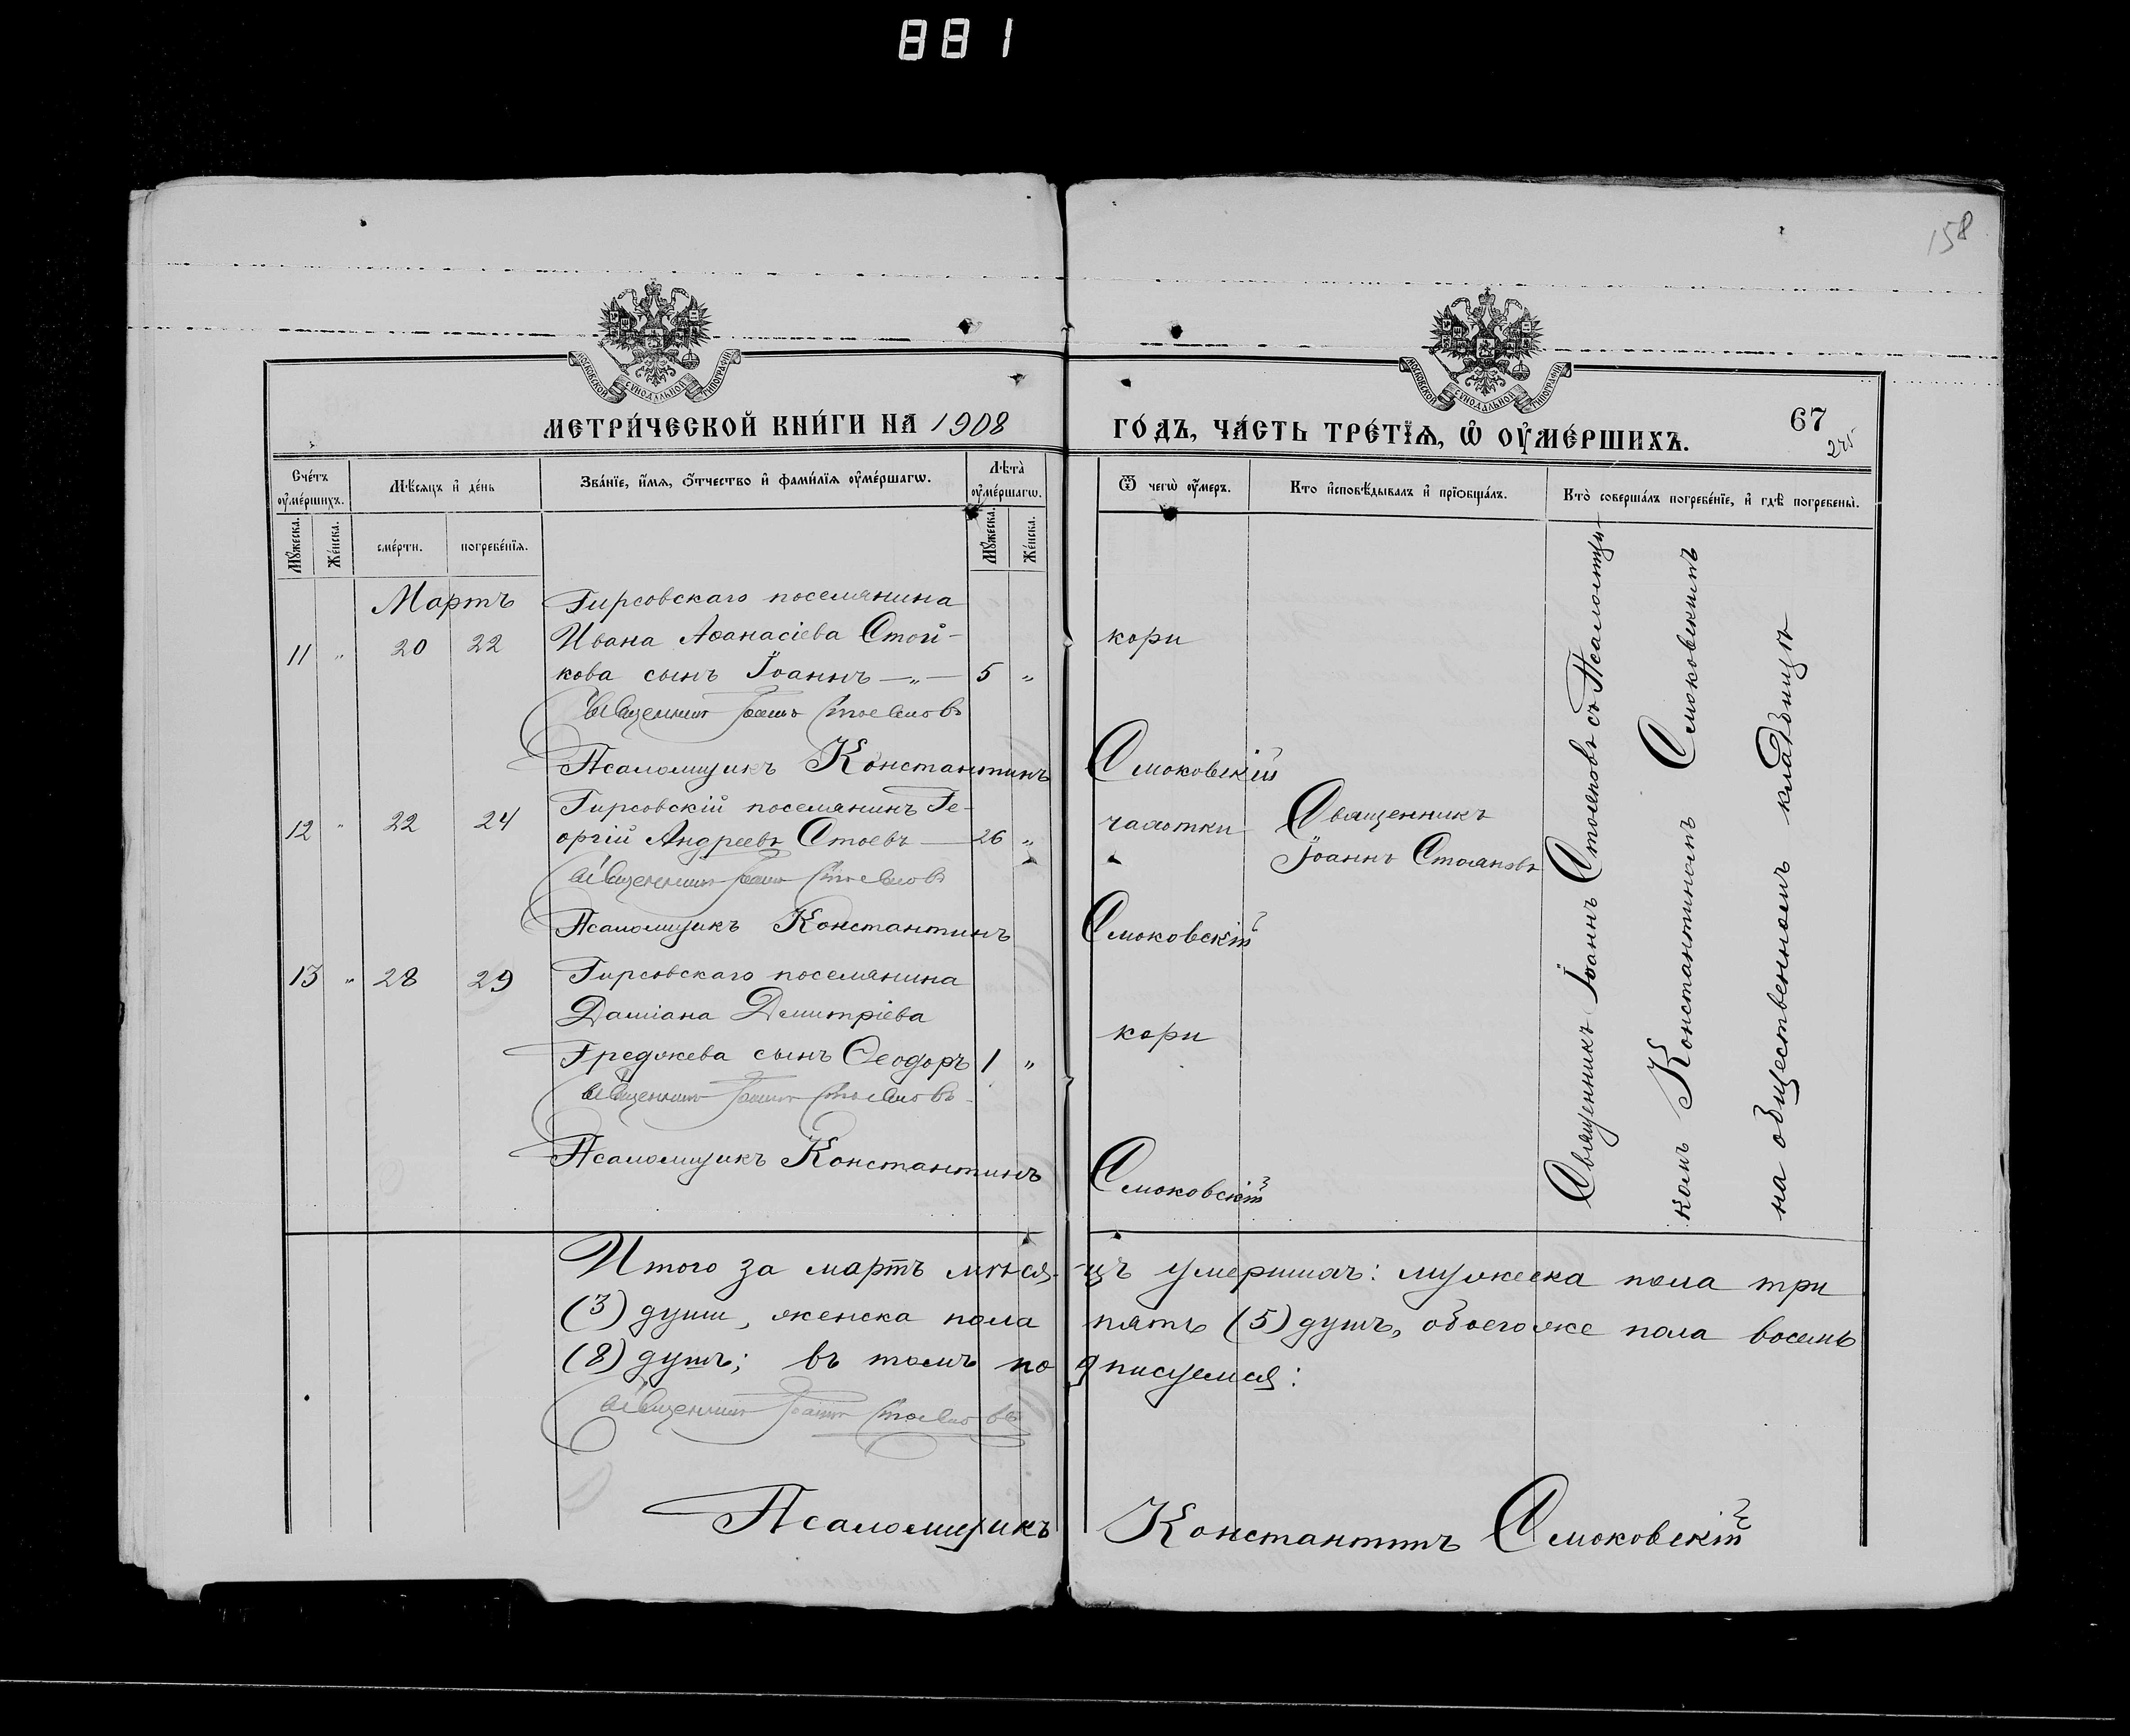 881
158
МОСКОВСКОЙ СѴНОДАЛЬНОЙ ТИПОГРАФІИ
МОСКОВСКОЙ СѴНОДАЛЬНОЙ ТИПОГРАФІИ
МЕТРИ́ЧЕСКОЙ КНИ́ГИ НА 1908
ГО́ДЪ, ЧА́СТЬ ТРЕ́ТЇѦ, Ѡ҆ ОУ҆МЕ́РШИХЪ.
67
Сче́тъ оу҆ме́ршихъ.
Мѣ́сѧцъ и҆ де́нь
Зва́нїе, и҆́мѧ, ѻ҆́тчество и҆ фами́лїѧ оу҆ме́ршагѡ.
Лѣ̑та̀ оу҆ме́ршагѡ.
Ѿ чегѡ̀ оу҆́меръ.
Кто̀ и҆сповѣ́дывалъ и҆ прїѡбща́лъ.
Кто̀ соверша́лъ погребе́нїе, и҆ гдѣ̀ погребены̀.
Мꙋ́жеска.
Же́нска.
сме́рти.
погребе́нїѧ.
Мꙋ́жеска.
Же́нска.
Мартъ
Гирсовскаго поселянина
11 „ 20 22 Ивана Аѳанасіева Стой-
кова сынъ Іоаннъ —„— 5 „ кори
Священникъ Іоаннъ Стояновъ
Псаломщикъ Константинъ Смоковскій
12 „ 22 24 Гирсовскій поселянинъ Ге-
оргій Андреевъ Стоевъ — 26 „ чахотки Священникъ
Іоаннъ Стояновъ
Священникъ Іоаннъ Стояновъ
Псаломщикъ Константинъ Смоковскій
13 „ 28 29 Гирсовскаго поселянина
Даміана Димитріева
Греджева сынъ Ѳеодоръ 1 „ кори
Священникъ Іоаннъ Стояновъ
Псаломщикъ Константинъ Смоковскій
Священникъ Іоаннъ Стояновъ съ Псаломщи-
комъ Константиномъ Смоковскимъ
на общественномъ кладбищѣ
Итого за мартъ мѣся-цъ умершихъ: мужеска пола три
(3) души, женска пола пять (5) душъ, обоего же пола восемь
(8) душъ; въ томъ подписуемся:
Священникъ Іоаннъ Стояновъ
Псаломщикъ Константинъ Смоковскій